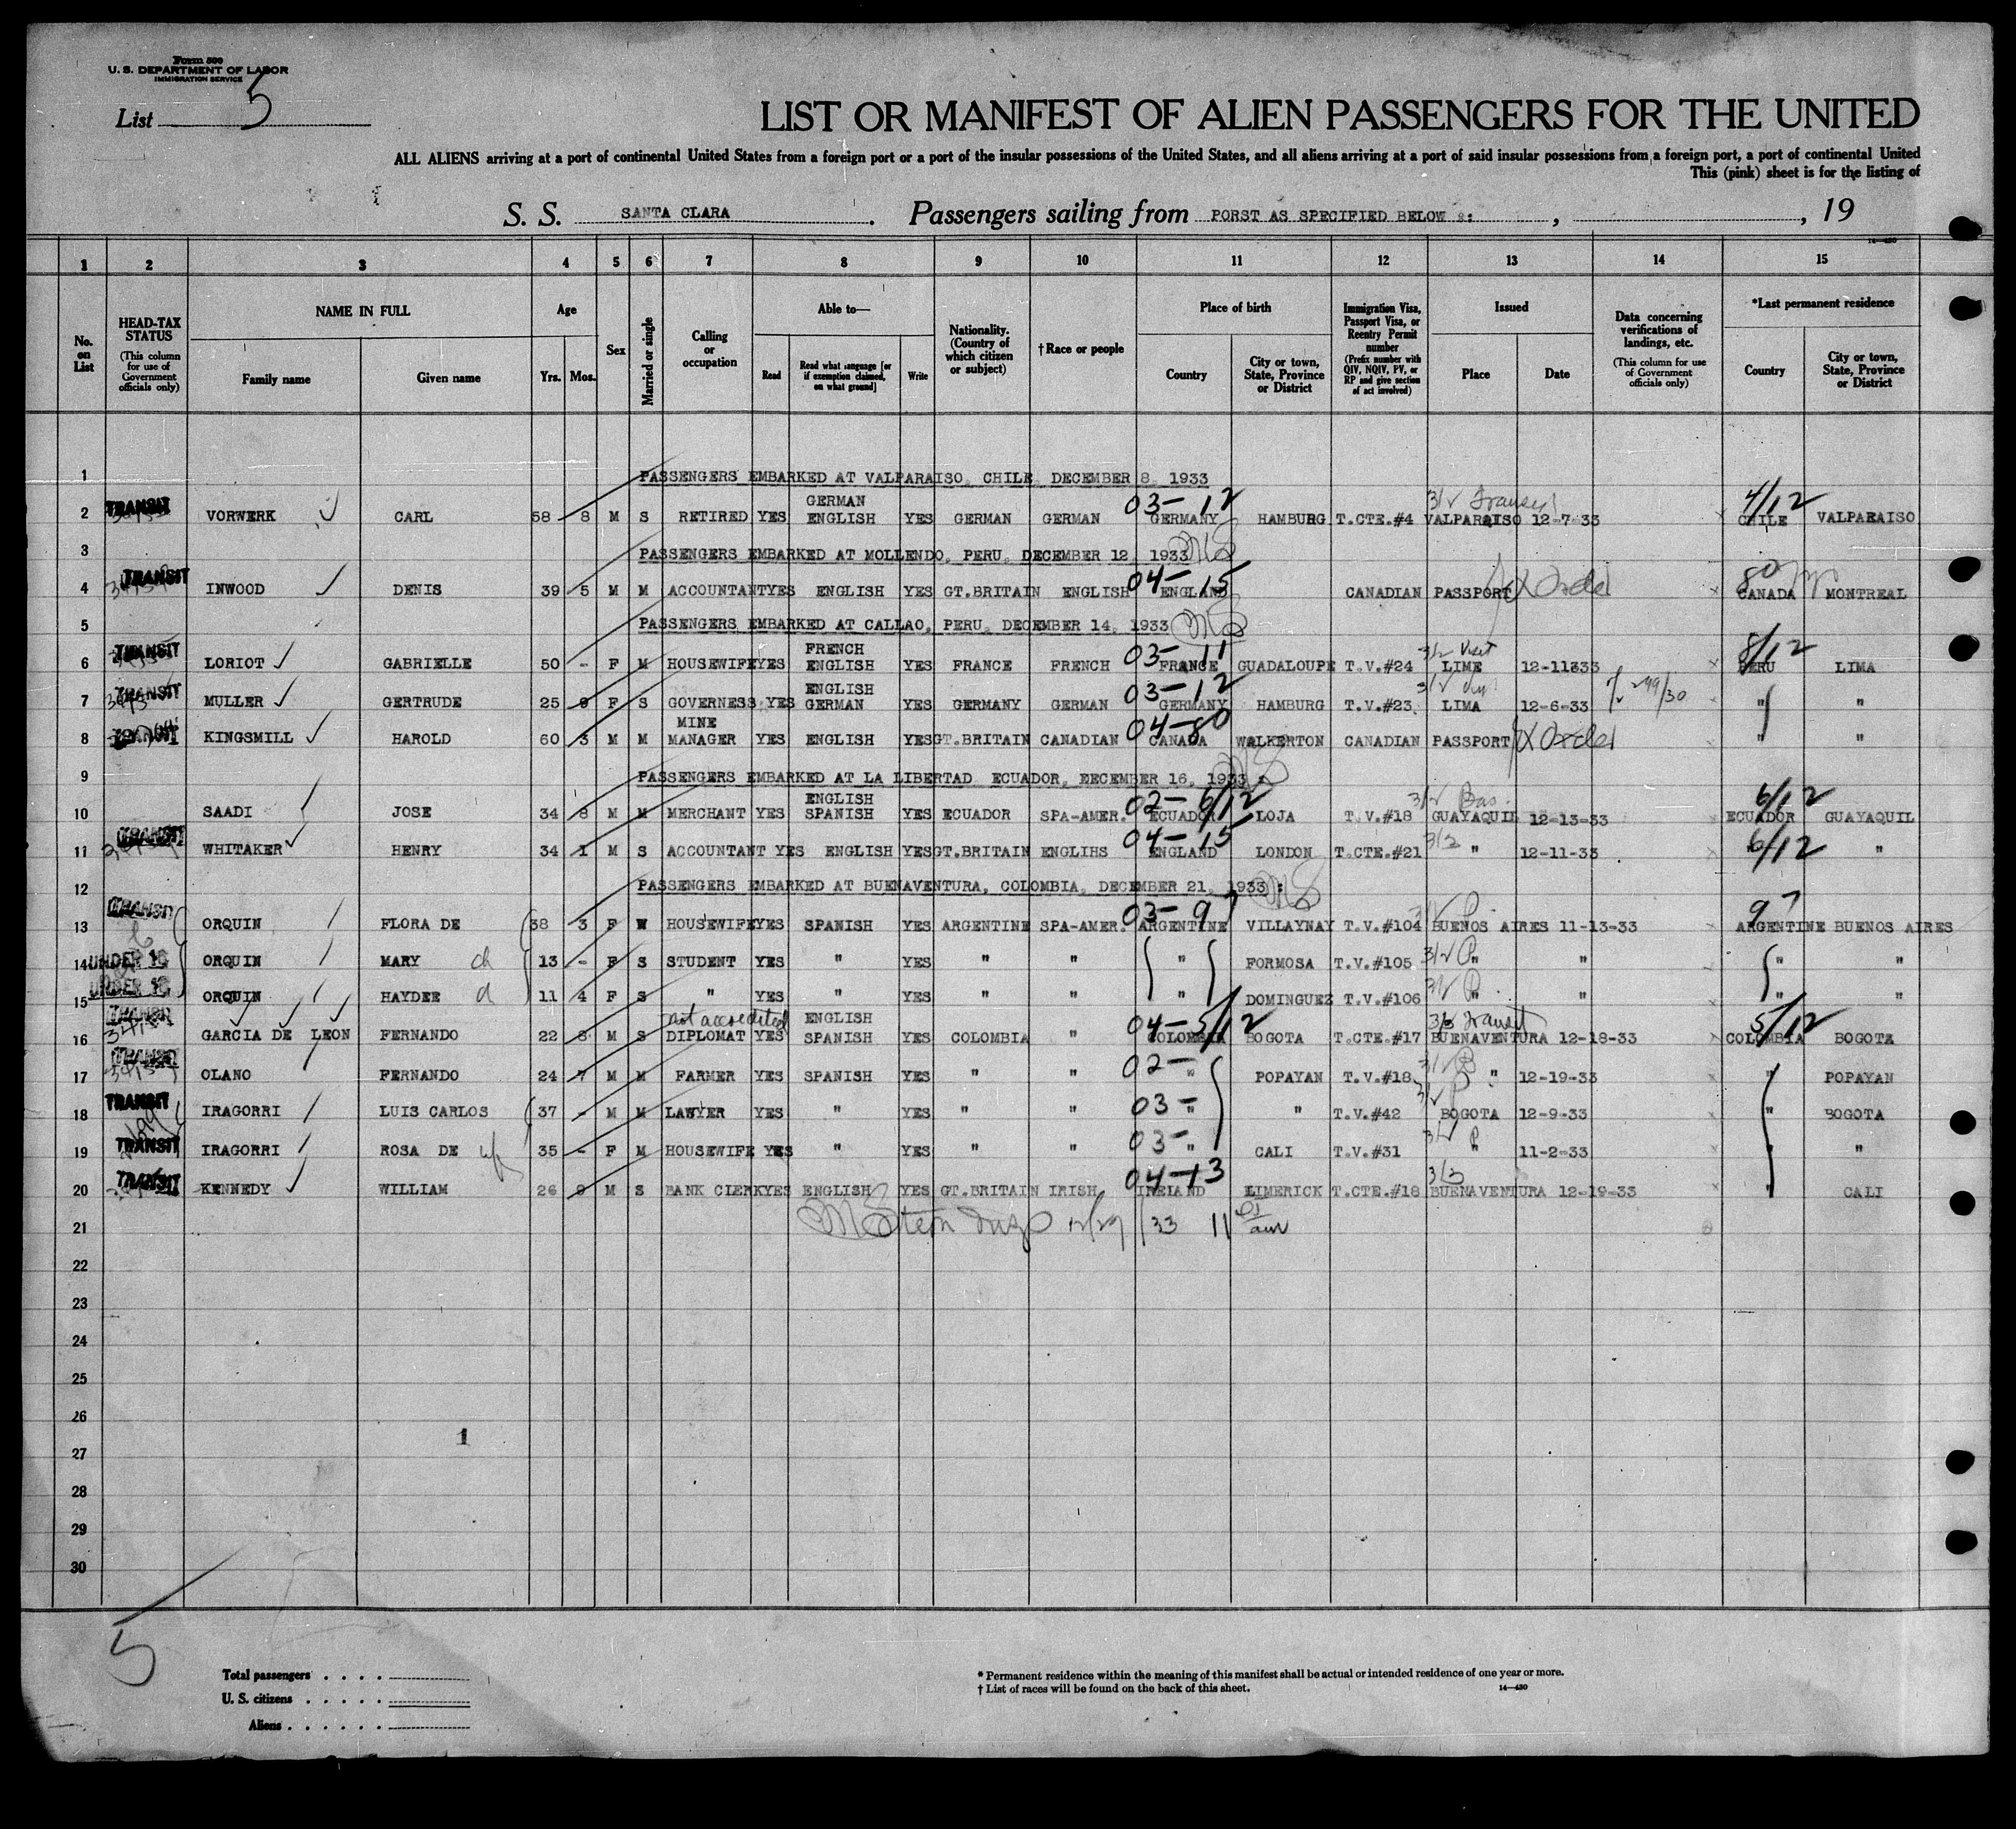 Form 500
U. S. DEPARTMENT OF LABOR
IMMIGRATION SERVICE
List 5
LIST OR MANIFEST OF ALIEN PASSENGERS FOR THE UNITED
ALL ALIENS arriving at a port of continental United States from a foreign port or a port of the insular possessions of the United States, and all aliens arriving at a port of said insular possessions from a foreign port, a port of continental United
This (pink) sheet is for the listing of
S. S. SANTA CLARA. Passengers sailing from PORST AS SPECIFIED BELOW , , 19
14—430
1 2 3 4 5 6 7 8 9 10 11 12 13 14 15
No. on List
HEAD-TAX STATUS (This column for use of Government officials only)
NAME IN FULL Family name Given name
Age Yrs. Mos.
Sex
Married or single
Calling or occupation
Able to— Read Read what language [or if exemption claimed, on what ground] Write
Nationality. (Country of which citizen or subject)
†Race or people
Place of birth Country City or town, State, Province or District
Immigration Visa, Passport Visa, or Reentry Permit number (Prefix number with QIV, NQIV, PV, or RP and give section of act involved)
Issued Place Date
Data concerning verifications of landings, etc. (This column for use of Government officials only)
*Last permanent residence Country City or town, State, Province or District
1 PASSENGERS EMBARKED AT VALPARAISO, CHILE, DECEMBER 8, 1933
2 TRANSIT VORWERK CARL 58 8 M S RETIRED YES GERMAN ENGLISH YES GERMAN GERMAN 03-12 GERMANY HAMBURG T.CTE.#4 3/2 Transit VALPARAISO 12-7-33 4/12 CHILE VALPARAISO
3 PASSENGERS EMBARKED AT MOLLENDO, PERU, DECEMBER 12, 1933 MS
4 TRANSIT INWOOD DENIS 39 5 M M ACCOUNTANT YES ENGLISH YES GT.BRITAIN ENGLISH 04-15 ENGLAND CANADIAN PASSPORT X Order 80 CANADA MONTREAL
5 PASSENGERS EMBARKED AT CALLAO, PERU, DECEMBER 14, 1933 MS
6 TRANSIT LORIOT GABRIELLE 50 - F M HOUSEWIFE YES FRENCH ENGLISH YES FRANCE FRENCH 03-11 FRANCE GUADALOUPE T.V.#24 3/2 Visit LIME 12-11333 8/12 PERU LIMA
7 TRANSIT MULLER GERTRUDE 25 9 F S GOVERNESS YES ENGLISH GERMAN YES GERMANY GERMAN 03-12 GERMANY HAMBURG T.V.#23 LIMA 12-6-33 " "
8 TRANSIT KINGSMILL HAROLD 60 3 M M MINE MANAGER YES ENGLISH YES GT.BRITAIN CANADIAN 04-80 CANADA WALKERTON CANADIAN PASSPORT X Order " "
9 PASSENGERS EMBARKED AT LA LIBERTAD ECUADOR, DECEMBER 16, 1933 : MS
10 SAADI JOSE 34 8 M M MERCHANT YES ENGLISH SPANISH YES ECUADOR SPA-AMER. 02-6/12 ECUADOR LOJA T.V.#18 3/2 Bus. GUAYAQUIL 12-13-33 6/12 ECUADOR GUAYAQUIL
11 TRANSIT WHITAKER HENRY 34 1 M S ACCOUNTANT YES ENGLISH YES GT.BRITAIN ENGLIHS 04-15 ENGLAND LONDON T.CTE.#21 3/3 " 12-11-33 6/12 "
12 PASSENGERS EMBARKED AT BUENAVENTURA, COLOMBIA, DECEMBER 21, 1933 : MS
13 TRANSIT ORQUIN FLORA DE 38 3 F W HOUSEWIFE YES SPANISH YES ARGENTINE SPA-AMER. 03-97 ARGENTINE VILLAYNAY T.V.#104 3/2 P BUENOS AIRES 11-13-33 97 ARGENTINE BUENOS AIRES
14 UNDER 16 ORQUIN MARY ch 13 - F S STUDENT YES " YES " " " FORMOSA T.V.#105 3/2 P " " " "
15 UNDER 16 ORQUIN HAYDEE d 11 4 F S " YES " YES " " " DOMINGUEZ T.V.#106 3/2 P " " " "
16 TRANSIT GARCIA DE LEON FERNANDO 22 8 M S not accredited DIPLOMAT YES ENGLISH SPANISH YES COLOMBIA " 04-5/12 COLOMBIA BOGOTA T.CTE.#17 3/3 Transit BUENAVENTURA 12-18-33 5/12 COLOMBIA BOGOTA
17 TRANSIT OLANO FERNANDO 24 7 M M FARMER YES SPANISH YES " " 02- " POPAYAN T.V.#18 3/2 B " 12-19-33 " POPAYAN
18 TRANSIT IRAGORRI LUIS CARLOS 37 - M M LAWYER YES " YES " " 03- " " T.V.#42 3/2 P BOGOTA 12-9-33 " BOGOTA
19 TRANSIT IRAGORRI ROSA DE wf 35 - F M HOUSEWIFE YES " YES " " 03- " CALI T.V.#31 3/2 P " 11-2-33 " "
20 TRANSIT KENNEDY WILLIAM 26 9 M S BANK CLERK YES ENGLISH YES GT.BRITAIN IRISH 04-13 IRELAND LIMERICK T.CTE.#18 3/3 BUENAVENTURA 12-19-33 " CALI
21 MStern Insp 12/29/33 11 am
22
23
24
25
26
27
28
29
30
1
5
Total passengers
U. S. citizens
Aliens
* Permanent residence within the meaning of this manifest shall be actual or intended residence of one year or more.
† List of races will be found on the back of this sheet.
14—430